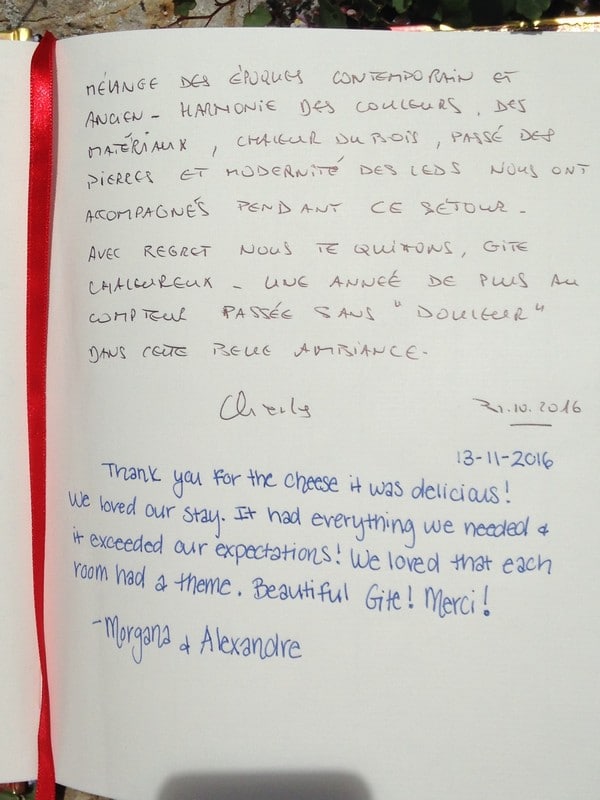 MÉLANGE DES ÉPOQUES CONTEMPORAIN ET
ANCIEN - HARMONIE DES COULEURS, DES
MATÉRIAUX, CHALEUR DU BOIS, PASSÉ DES
PIERRES ET MODERNITÉ DES LEDS NOUS ONT
ACOMPAGNÉS PENDANT CE SÉJOUR -
AVEC REGRET NOUS TE QUITTONS, GITE
CHALEUREUX - UNE ANNÉE DE PLUS AU
COMPTEUR PASSÉE SANS "DOULEUR"
DANS CETTE BELLE AMBIANCE -
31.10.2016
13-11-2016
Thank you for the cheese it was delicious!
We loved our stay. It had everything we needed &
it exceeded our expectations! We loved that each
room had a theme. Beautiful Gite! Merci!
-Morgana & Alexandre